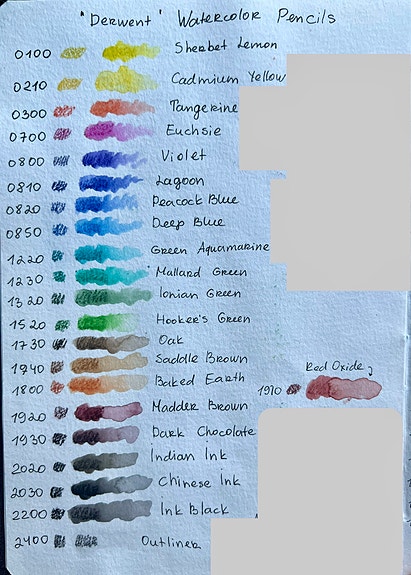 "Derwent" Watercolor Pencils
0100 Sherbet Lemon
0210 Cadmium Yellow
0300 Tangerine
0700 Fuchsie
0800 Violet
0810 Lagoon
0820 Peacock Blue
0850 Deep Blue
1220 Green Aquamarine
1230 Mallard Green
1320 Ionian Green
1520 Hooker's Green
1730 Oak
1740 Saddle Brown
1800 Baked Earth
1910 Red Oxide
1920 Madder Brown
1930 Dark Chocolate
2020 Indian Ink
2030 Chinese Ink
2200 Ink Black
2400 Outliner